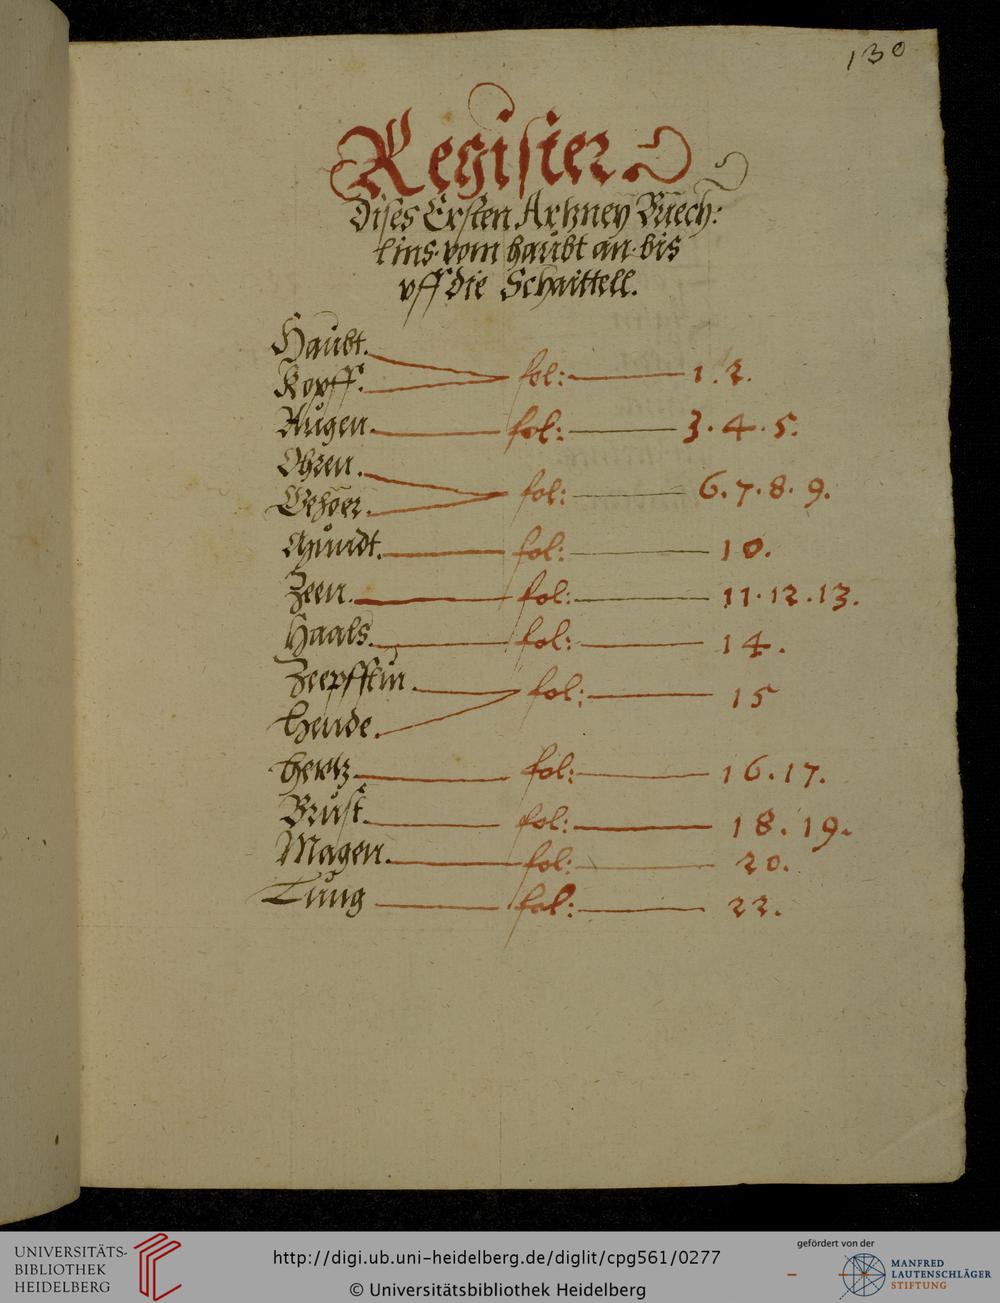 130
Register
dises Ersten Artzney Buech:
lins vom haubt an bis
vff die Schaittell.
Haubt.
Kopff. fol: 1. 2.
Augen. fol: 3. 4. 5.
Ohren.
Gehoer. fol: 6. 7. 8. 9.
Mundt. fol: 10.
Zeen. fol: 11. 12. 13.
Haals. fol: 14.
Zeepfflin.
Hende. fol: 15
Hertz. fol: 16. 17.
Brust. fol: 18. 19.
Magen. fol: 20.
Lung fol: 22.
UNIVERSITÄTS-
BIBLIOTHEK
HEIDELBERG
http://digi.ub.uni-heidelberg.de/diglit/cpg561/0277
© Universitätsbibliothek Heidelberg
gefördert von der
MANFRED
LAUTENSCHLÄGER
STIFTUNG